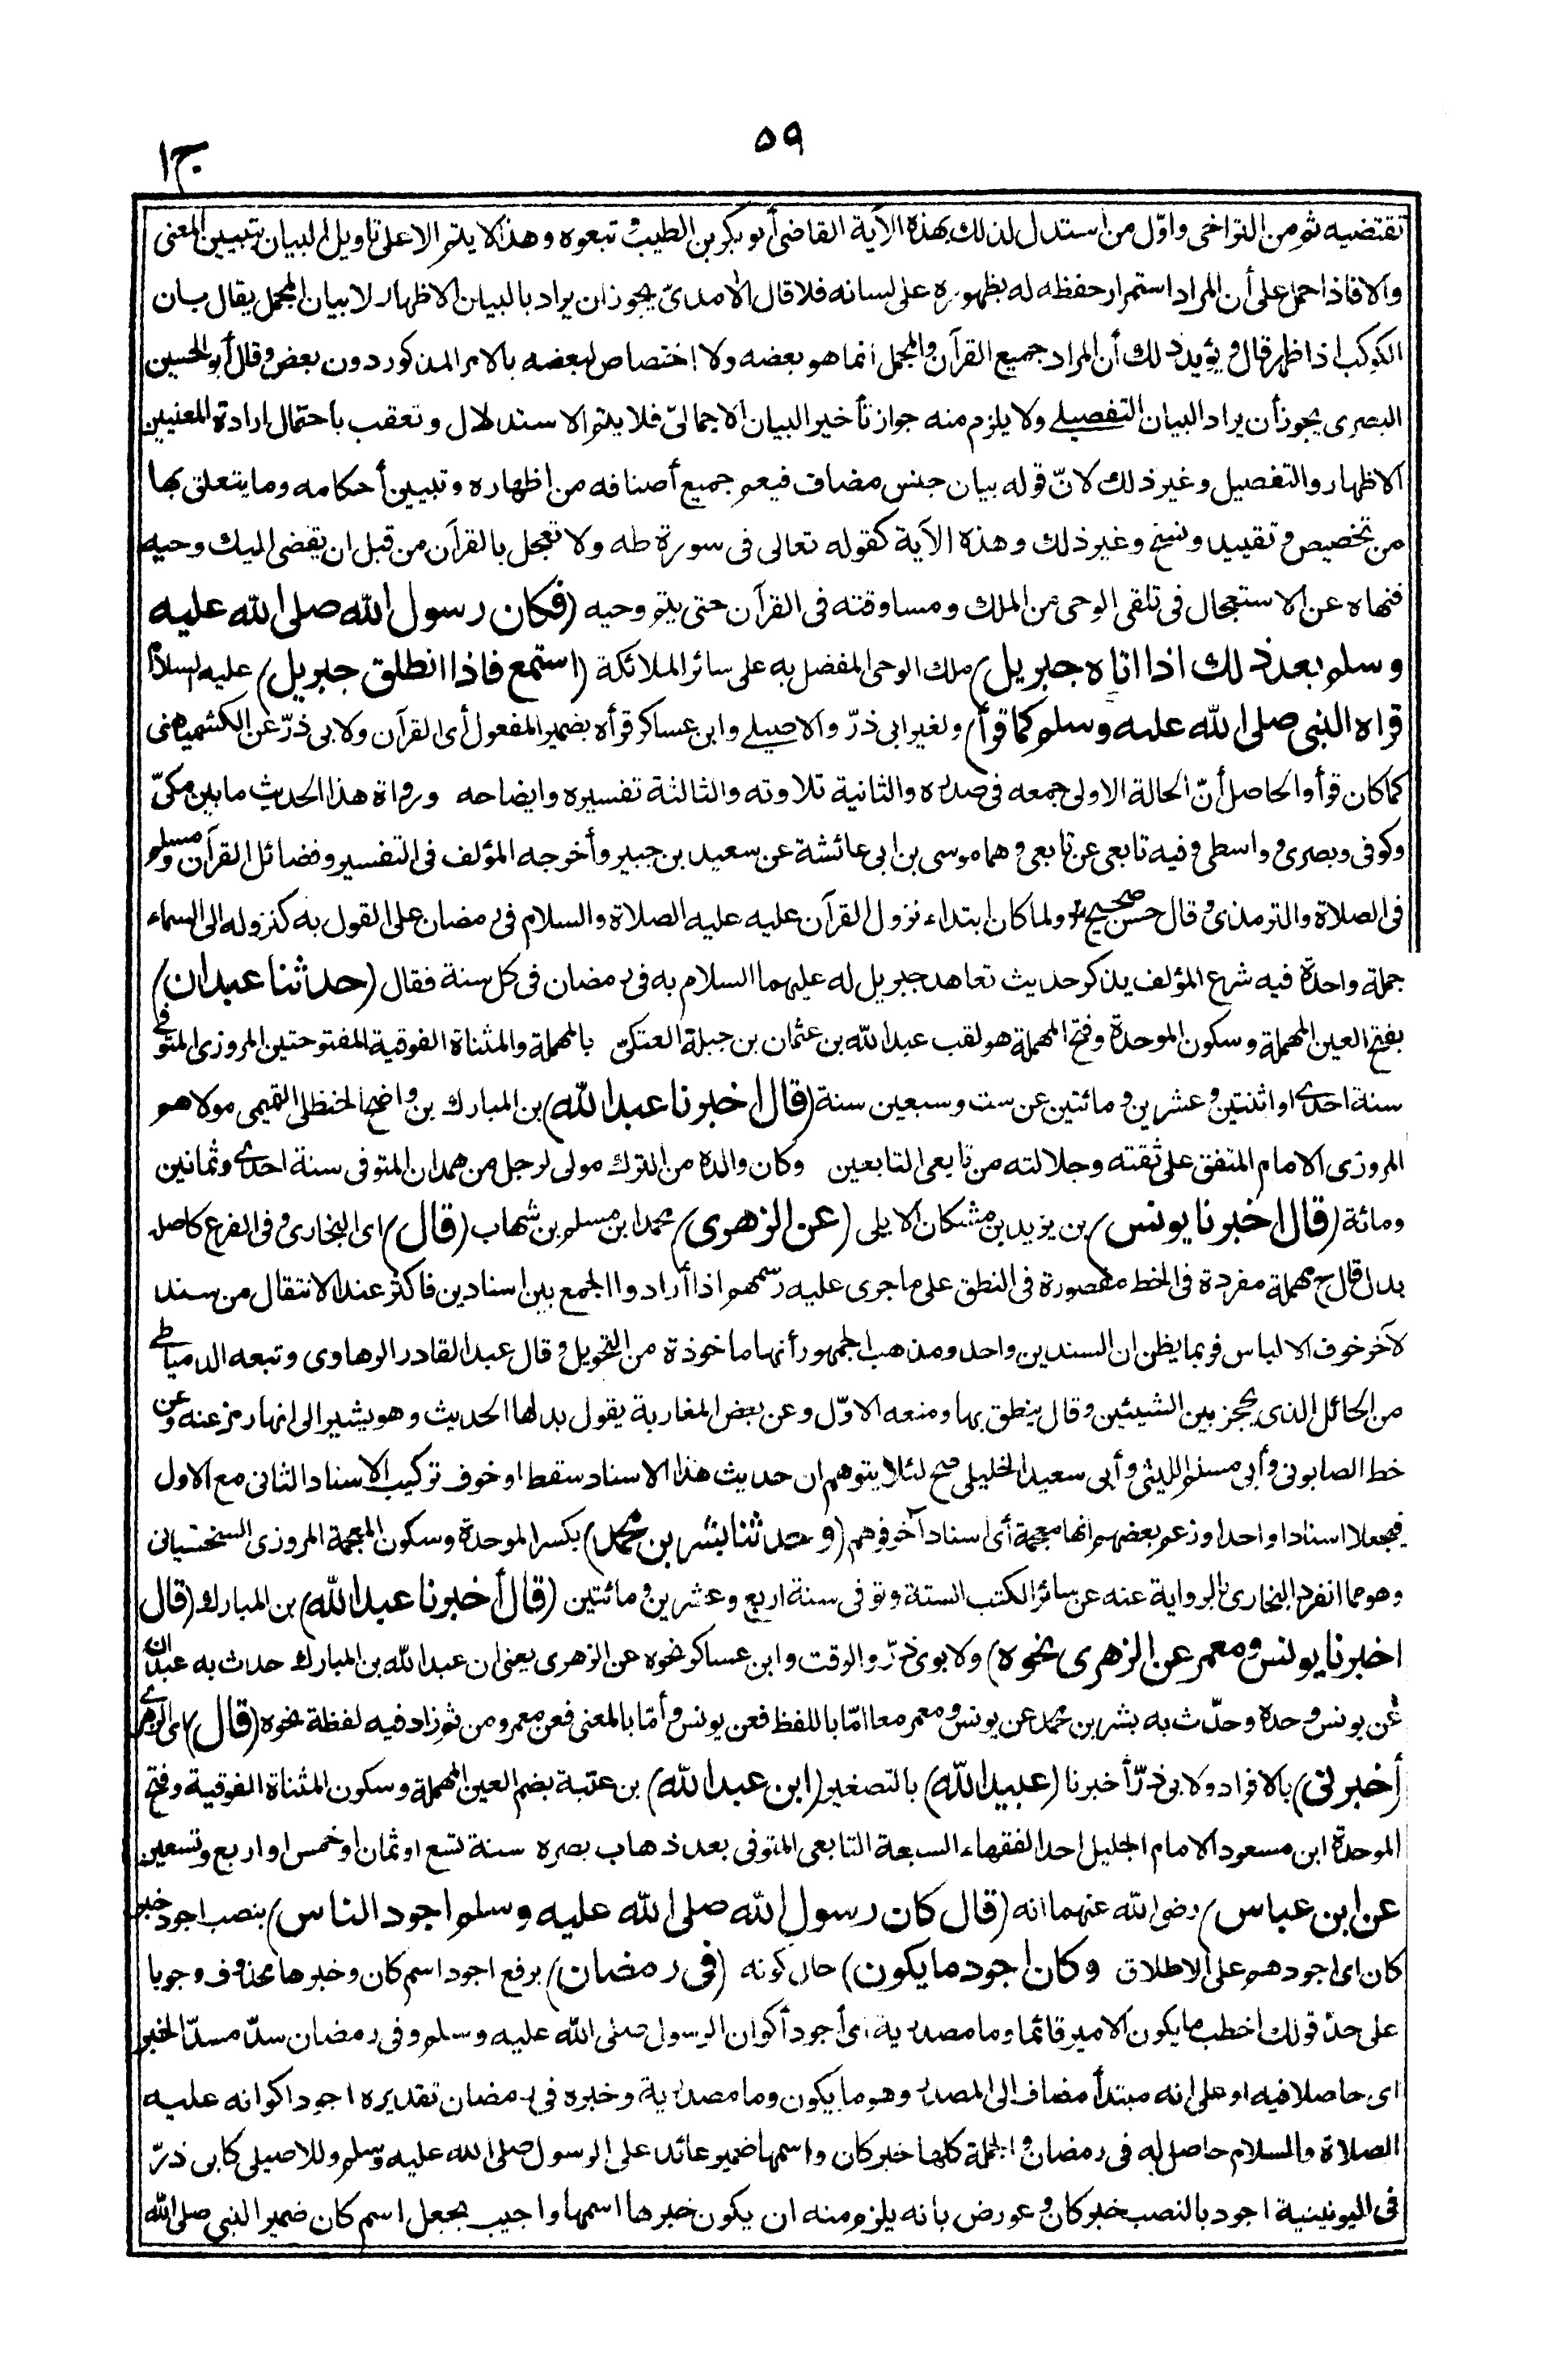 ٥٩
ج١
تقتضيه ثم من التراخى واوّل من استدل لذلك بهذه الآية القاضى أبو بكر بن الطيب وتبعوه وهذا لا يتم الا على تاويل البيان بتبيين المعنى
والا فاذا حمل على أن المراد استمرار حفظه له بظهوره على لسانه فلا قال الآمدىّ يجوز ان يراد بالبيان الاظهار لا بيان المجمل يقال بان
الكوكب اذا ظهر قال ويؤيد ذلك أن المراد جميع القرآن والمجمل انما هو بعضه ولا اختصاص لبعضه بالامر المذكور دون بعض وقال أبو الحسين
البصرى يجوز أن يراد البيان التفصيلى ولا يلزم منه جواز تأخير البيان الاجمالىّ فلا يتم الاستدلال وتعقب باحتمال ارادة المعنيين
الاظهار والتفصيل وغير ذلك لانّ قوله بيان جنس مضاف فيعم جميع أصنافه من اظهاره وتبيين أحكامه وما يتعلق بها
من تخصيص وتقييد ونسخ وغير ذلك وهذه الآية كقوله تعالى فى سورة طه ولا تعجل بالقرآن من قبل ان يقضى اليك وحيه
فنهاه عن الاستعجال فى تلقى الوحى من الملك ومساوقته فى القرآن حتى يتم وحيه (فكان رسول الله صلى الله عليه
وسلم بعد ذلك اذا اتاه جبريل) ملك الوحى المفضل به على سائر الملائكة (استمع فاذا انطلق جبريل) عليه السلام
قراه النبى صلى الله عليه وسلم كما قرأ) ولغير ابى ذرّ والاصيلى وابن عساكر قرأه بضمير المفعول أى القرآن ولابى ذرّ عن الكشميهنى
كما كان قرأ والحاصل أنّ الحالة الاولى جمعه فى صدره والثانية تلاوته والثالثة تفسيره وايضاحه ورواة هذا الحديث ما بين مكىّ
وكوفى وبصرى وواسطى وفيه تابعى عن تابعى وهما موسى بن ابى عائشة عن سعيد بن جبير وأخرجه المؤلف فى التفسير وفضائل القرآن ومسلم
فى الصلاة والترمذى وقال حسن صحيح ولما كان ابتداء نزول القرآن عليه عليه الصلاة والسلام فى رمضان على القول به كنزوله الى السماء
جملة واحدة فيه شرع المؤلف يذكر حديث تعاهد جبريل له عليهما السلام به فى رمضان فى كل سنة فقال (حدثنا عبدان)
بفتح العين المهملة وسكون الموحدة وفتح المهملة هو لقب عبد الله بن عثمان بن جبلة العتكىّ بالمهملة والمثناة الفوقية المفتوحتين المروزى المتوفى
سنة احدى او اثنتين وعشرين ومائتين عن ست وسبعين سنة (قال اخبرنا عبد الله) بن المبارك بن واضح الحنظلى التميمى مولاهم
المروزى الامام المتفق على ثقته وجلالته من تابعى التابعين وكان والده من الترك مولى لرجل من همدان المتوفى سنة احدى وثمانين
ومائة (قال اخبرنا يونس) بن يزيد بن مشكان الايلى (عن الزهرى) محمد ابن مسلم بن شهاب (قال) اى البخارى وفى الفرع كاصله
بدل قال ح مهملة مفردة فى الخط مقصورة فى النطق على ما جرى عليه رسمهم اذا أرادوا الجمع بين اسنادين فاكثر عند الانتقال من سند
لآخر خوف الالباس فربما يظن ان السندين واحد ومذهب الجمهور أنها ماخوذة من التحويل وقال عبد القادر الرهاوى وتبعه الدمياطى
من الحائل الذى يحجز بين الشيئين وقال ينطق بها ومنعه الاوّل وعن بعض المغاربة يقول بدلها الحديث وهو يشير الى انها رمز عنه وعن
خط الصابونى وأبى مسلم الليثى وأبى سعيد الخليلى صح لئلا يتوهم ان حديث هذا الاسناد سقط او خوف تركيب الاسناد الثانى مع الاول
فيجعلا اسنادا واحدا وزعم بعضهم انها معجمة أى اسناد آخر فوهم (وحدثنا بشر بن محمد) بكسر الموحدة وسكون المعجمة المروزى السختيانى
وهو مما انفرد البخارى بالرواية عنه عن سائر الكتب الستة وتوفى سنة اربع وعشرين ومائتين (قال أخبرنا عبد الله) بن المبارك (قال
اخبرنا يونس ومعمر عن الزهرى نحوه) ولابوى ذرّ والوقت وابن عساكر نحوه عن الزهرى يعنى ان عبد الله بن المبارك حدث به عبدان
عن يونس وحده وحدّث به بشر بن محمد عن يونس ومعمر معا امّا باللفظ فعن يونس وأمّا بالمعنى فعن معمر ومن ثم زاد فيه لفظة نحوه (قال) اى الزهرى
(أخبرنى) بالافراد ولابى ذرّ أخبرنا (عبيد الله) بالتصغير (ابن عبد الله) بن عتبة بضم العين المهملة وسكون المثناة الفوقية وفتح
الموحدة ابن مسعود الامام الجليل احد الفقهاء السبعة التابعى المتوفى بعد ذهاب بصره سنة تسع او ثمان او خمس او اربع وتسعين
عن ابن عباس) رضى الله عنهما انه (قال كان رسول الله صلى الله عليه وسلم اجود الناس) بنصب اجود خبر
كان اى اجودهم على الاطلاق وكان اجود ما يكون) حال كونه (فى رمضان) برفع اجود اسم كان وخبرها محذوف وجوبا
على حدّ قولك اخطب ما يكون الامير قائما وما مصدرية أى أجود أكوان الرسول صلى الله عليه وسلم وفى رمضان سدّ مسدّ الخبر
اى حاصلا فيه او على انه مبتدأ مضاف الى المصدر وهو ما يكون وما مصدرية وخبره فى رمضان تقديره اجود اكوانه عليه
الصلاة والسلام حاصل له فى رمضان والجملة كلها خبر كان واسمها ضمير عائد على الرسول صلى الله عليه وسلم وللاصيلى كابى ذرّ
فى اليونينية اجود بالنصب خبر كان وعورض بانه يلزم منه ان يكون خبرها اسمها واجيب بجعل اسم كان ضمير النبى صلى الله